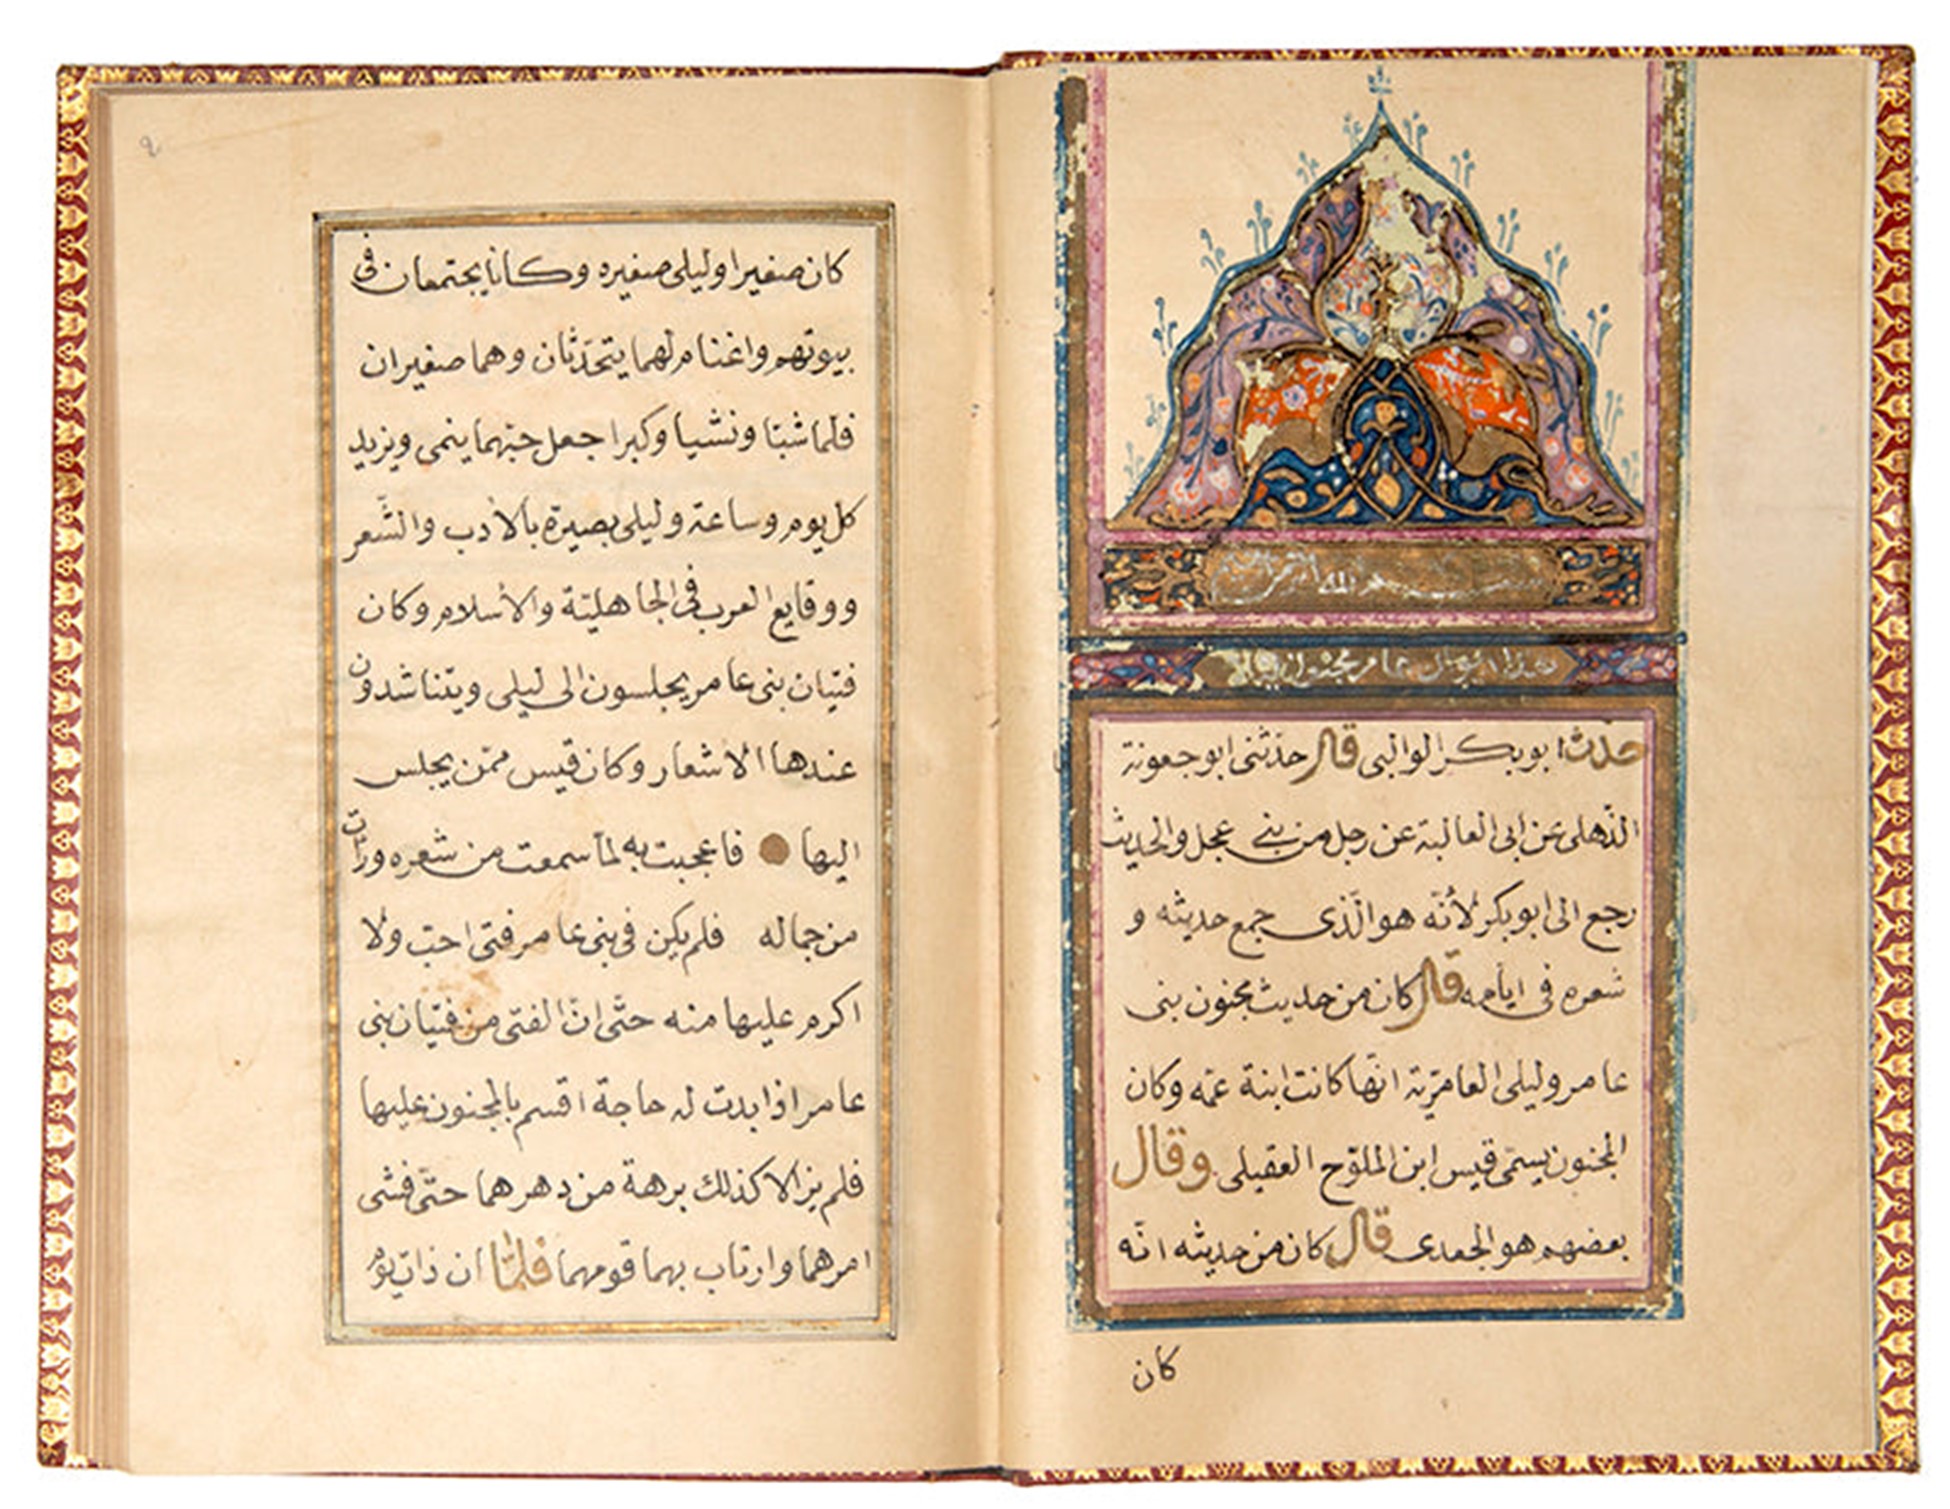 بسم الله الرحمن الرحيم
هذا ديوان عامر مجنون ليلى
حدث ابو بكر الوالبى قال حدثنى ابو جعونة
الذهلى عن ابى العالية عن رجل من بنى عجل والحديث
رجع الى ابو بكر لأنّه هو الّذى جمع حديثه و
شعره فى ايامه قال كان من حديث مجنون بنى
عامر وليلى العامريّة انّها كانت ابنة عمّه وكان
المجنون يسمّى قيس ابن الملوّح العقيلى وقال
بعضهم هو الجعدى قال كان من حديثه انّه
كان
كان صغيرا وليلى صغيره وكانا يجتمعان فى
بيوتهم واغنام لهما يتحدّثان وهما صغيران
فلما شبّا ونشيا وكبرا جعل حبّهما ينمى ويزيد
كل يوم وساعة وليلى بصيرة بالأدب والشّعر
ووقايع العرب فى الجاهليّة والأسلام وكان
فتيان بنى عامر يجلسون الى ليلى ويتناشدون
عندها الأشعار وكان قيس ممّن يجلس
اليها فاعجبت به لمّا سمعت من شعره ورأت
من جماله فلم يكن فى بنى عامر فتى احبّ ولا
اكرم عليها منه حتّى انّ الفتى من فتيان بنى
عامر اذا بدت له حاجة اقسم بالمجنون عليها
فلم يزالا كذلك برهة من دهرهما حتّى فشى
امرهما وارتاب بهما قومهما فلمّا ان ذات يوم